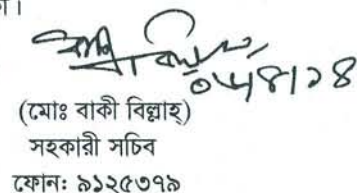 ০৮/৪/১৪
(মোঃ বাকী বিল্লাহ্)
সহকারী সচিব
ফোনঃ ৯১২৫৩৭৯